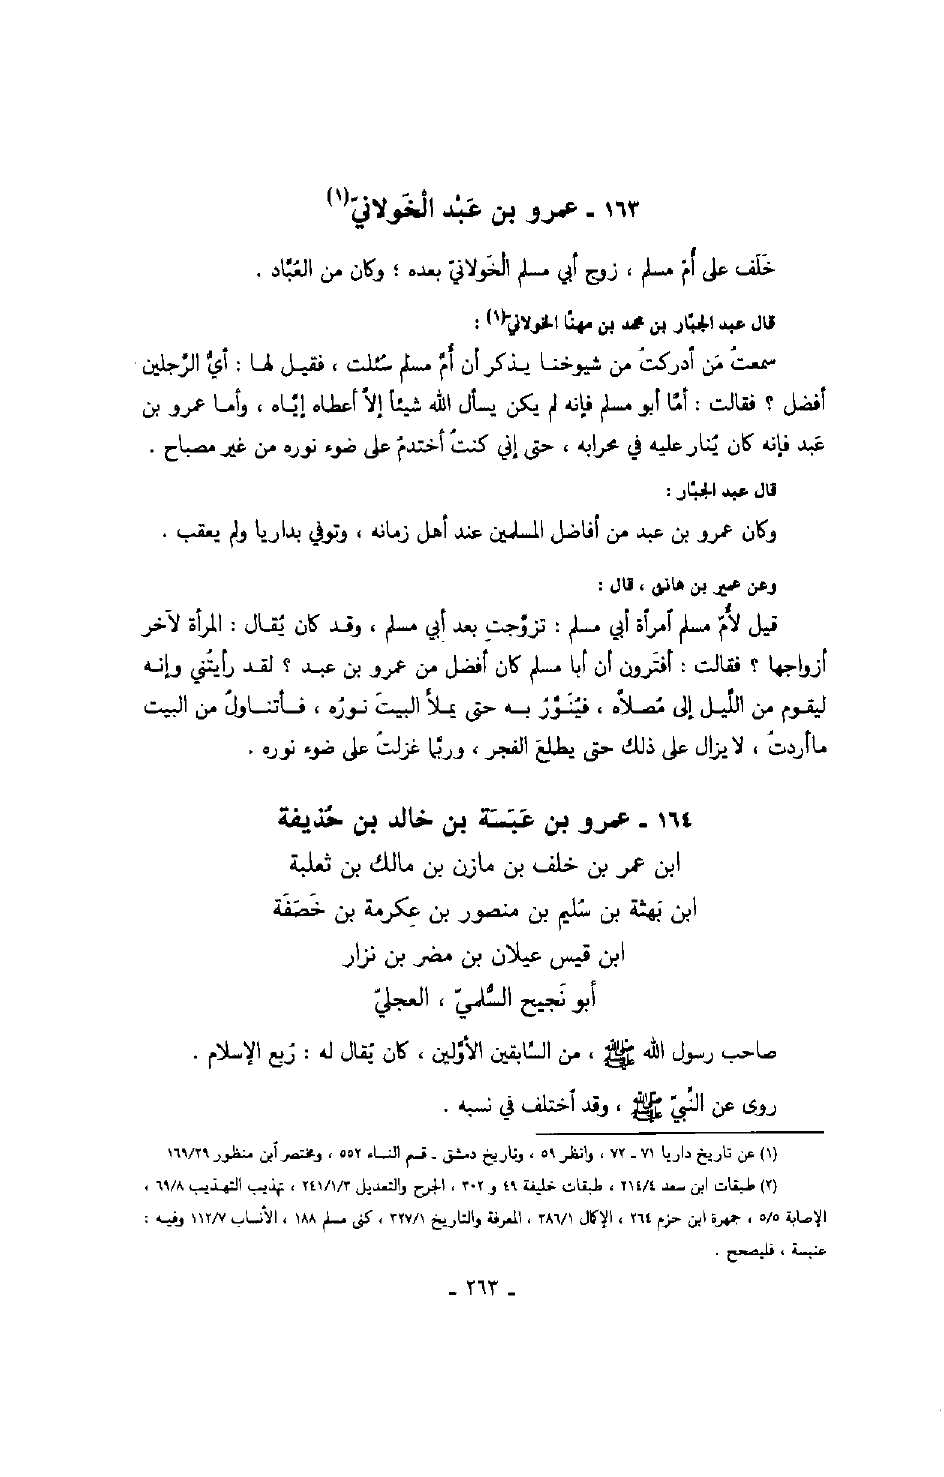 ١٦٣ ـ عمرو بن عَبْد الْخَولانيّ(١)
خَلَف على أُمّ مسلم ، زوج أبي مسلم الخَولانيّ بعده ؛ وكان من العُبَّاد .
قال عبد الجبّار بن محمد بن مهنّا الخولانيّ(١) :
سمعتُ مَن أدركتُ من شيوخنا يذكر أن أُمَّ مسلم سُئلت ، فقيل لها : أيُّ الرَّجلين
أفضل ؟ فقالت : أمّا أبو مسلم فإنه لم يكن يسأل الله شيئاً إلاّ أعطاه إيّاه ، وأما عمرو بن
عَبد فإنه كان يُنار عليه في محرابه ، حتى إني كنتُ أختدمُ على ضوء نوره من غير مصباح .
قال عبد الجبّار :
وكان عمرو بن عبد من أفاضل المسلمين عند أهل زمانه ، وتوفي بداريا ولم يعقب .
وعن عمير بن هانئ ، قال :
قيل لأُمّ مسلم آمرأة أبي مسلم : تزوَّجتِ بعد أبي مسلم ، وقد كان يُقال : المرأة لآخر
أزواجها ؟ فقالت : أفتَرون أن أبا مسلم كان أفضل من عمرو بن عبد ؟ لقد رأيتُني وإنه
ليقوم من اللَّيل إلى مُصلاّه ، فيُنَوَّرُ به حتى يملأ البيتَ نورُه ، فأتناولُ من البيت
ماأردتُ ، لا يزال على ذلك حتى يطلعَ الفجر ، وربّما غزلتُ على ضوء نوره .
١٦٤ ـ عمرو بن عَبَسَة بن خالد بن حُذيفة
ابن عمر بن خلف بن مازن بن مالك بن ثعلبة
ابن بَهثة بن سُليم بن منصور بن عِكرمة بن خَصَفَة
ابن قيس عيلان بن مضر بن نزار
أبو نَجيح السُّلميّ ، العجليّ
صاحب رسول الله ﷺ ، من السَّابقين الأوَّلين ، كان يُقال له : رُبع الإسلام .
روى عن النَّبيّ ﷺ ، وقد آختلف في نسبه .
(١) عن تاريخ داريا ٧١ ـ ٧٢ ، وانظر ٥٩ ، وتاريخ دمشق ـ قسم النساء ٥٥٢ ، ومختصر آبن منظور ١٦٩/٢٩
(٢) طبقات ابن سعد ٢١٤/٤ ، طبقات خليفة ٤٩ و ٣٠٢ ، الجرح والتعديل ٢٤١/١/٣ ، تهذيب التهذيب ٦٩/٨ ،
الإصابة ٥/٥ ، جمهرة ابن حزم ٢٦٤ ، الإكمال ٣٨٦/١ ، المعرفة والتاريخ ٣٢٧/١ ، كنى مسلم ١٨٨ ، الأنساب ١١٢/٧ وفيه :
عنبسة ، فليصحح .
ـ ٢٦٣ ـ